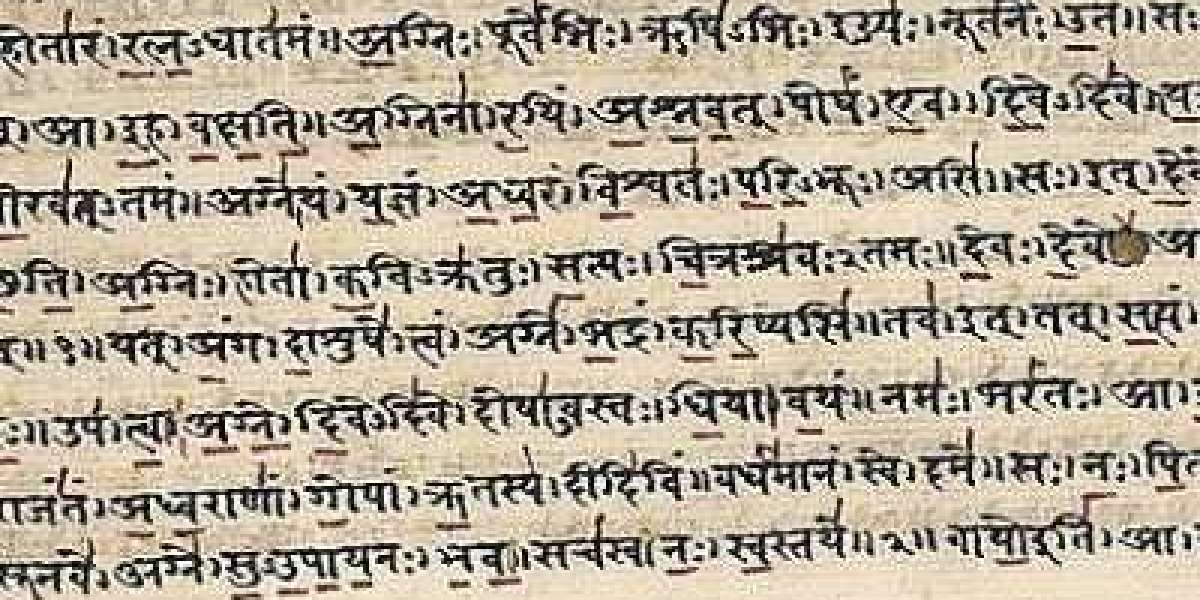 होतारं। रत्नऽधातमं॥ अग्निः। पूर्वेभिः। ऋषिऽभिः। ईड्यः। नूतनैः। उत॥ सः
आ। इह। वक्षति॥ अग्निना। रयिं। अश्नवत्। पोषं। एव। दिवेऽदिवे॥
वीरवत्ऽतमं॥ अग्ने। यं। यज्ञं। अध्वरं। विश्वतः। परिऽभूः। असि॥ सः। इत्। देवे
ति। अग्निः। होता। कविऽक्रतुः। सत्यः। चित्रश्रवःऽतमः॥ देवः। देवे आ
त्॥१॥ यत्। अंग। दाशुषे। त्वं। अग्ने। भद्रं। करिष्यसि॥ तव। इत्। तत्। सत्यं
ः॥ उप। त्वा। अग्ने। दिवेऽदिवे। दोषाऽवस्तः। धिया। वयं॥ नमः। भरंतः। आ।
राजंतं। अध्वराणां। गोपां। ऋतस्य। दीदिविं॥ वर्धमानं। स्वे। दमे॥ सः। नः। पि
सूनवे। अग्ने। सुऽउपायनः। भव॥ सचस्व। नः। स्वस्तये॥२॥ वायो इति। आ।